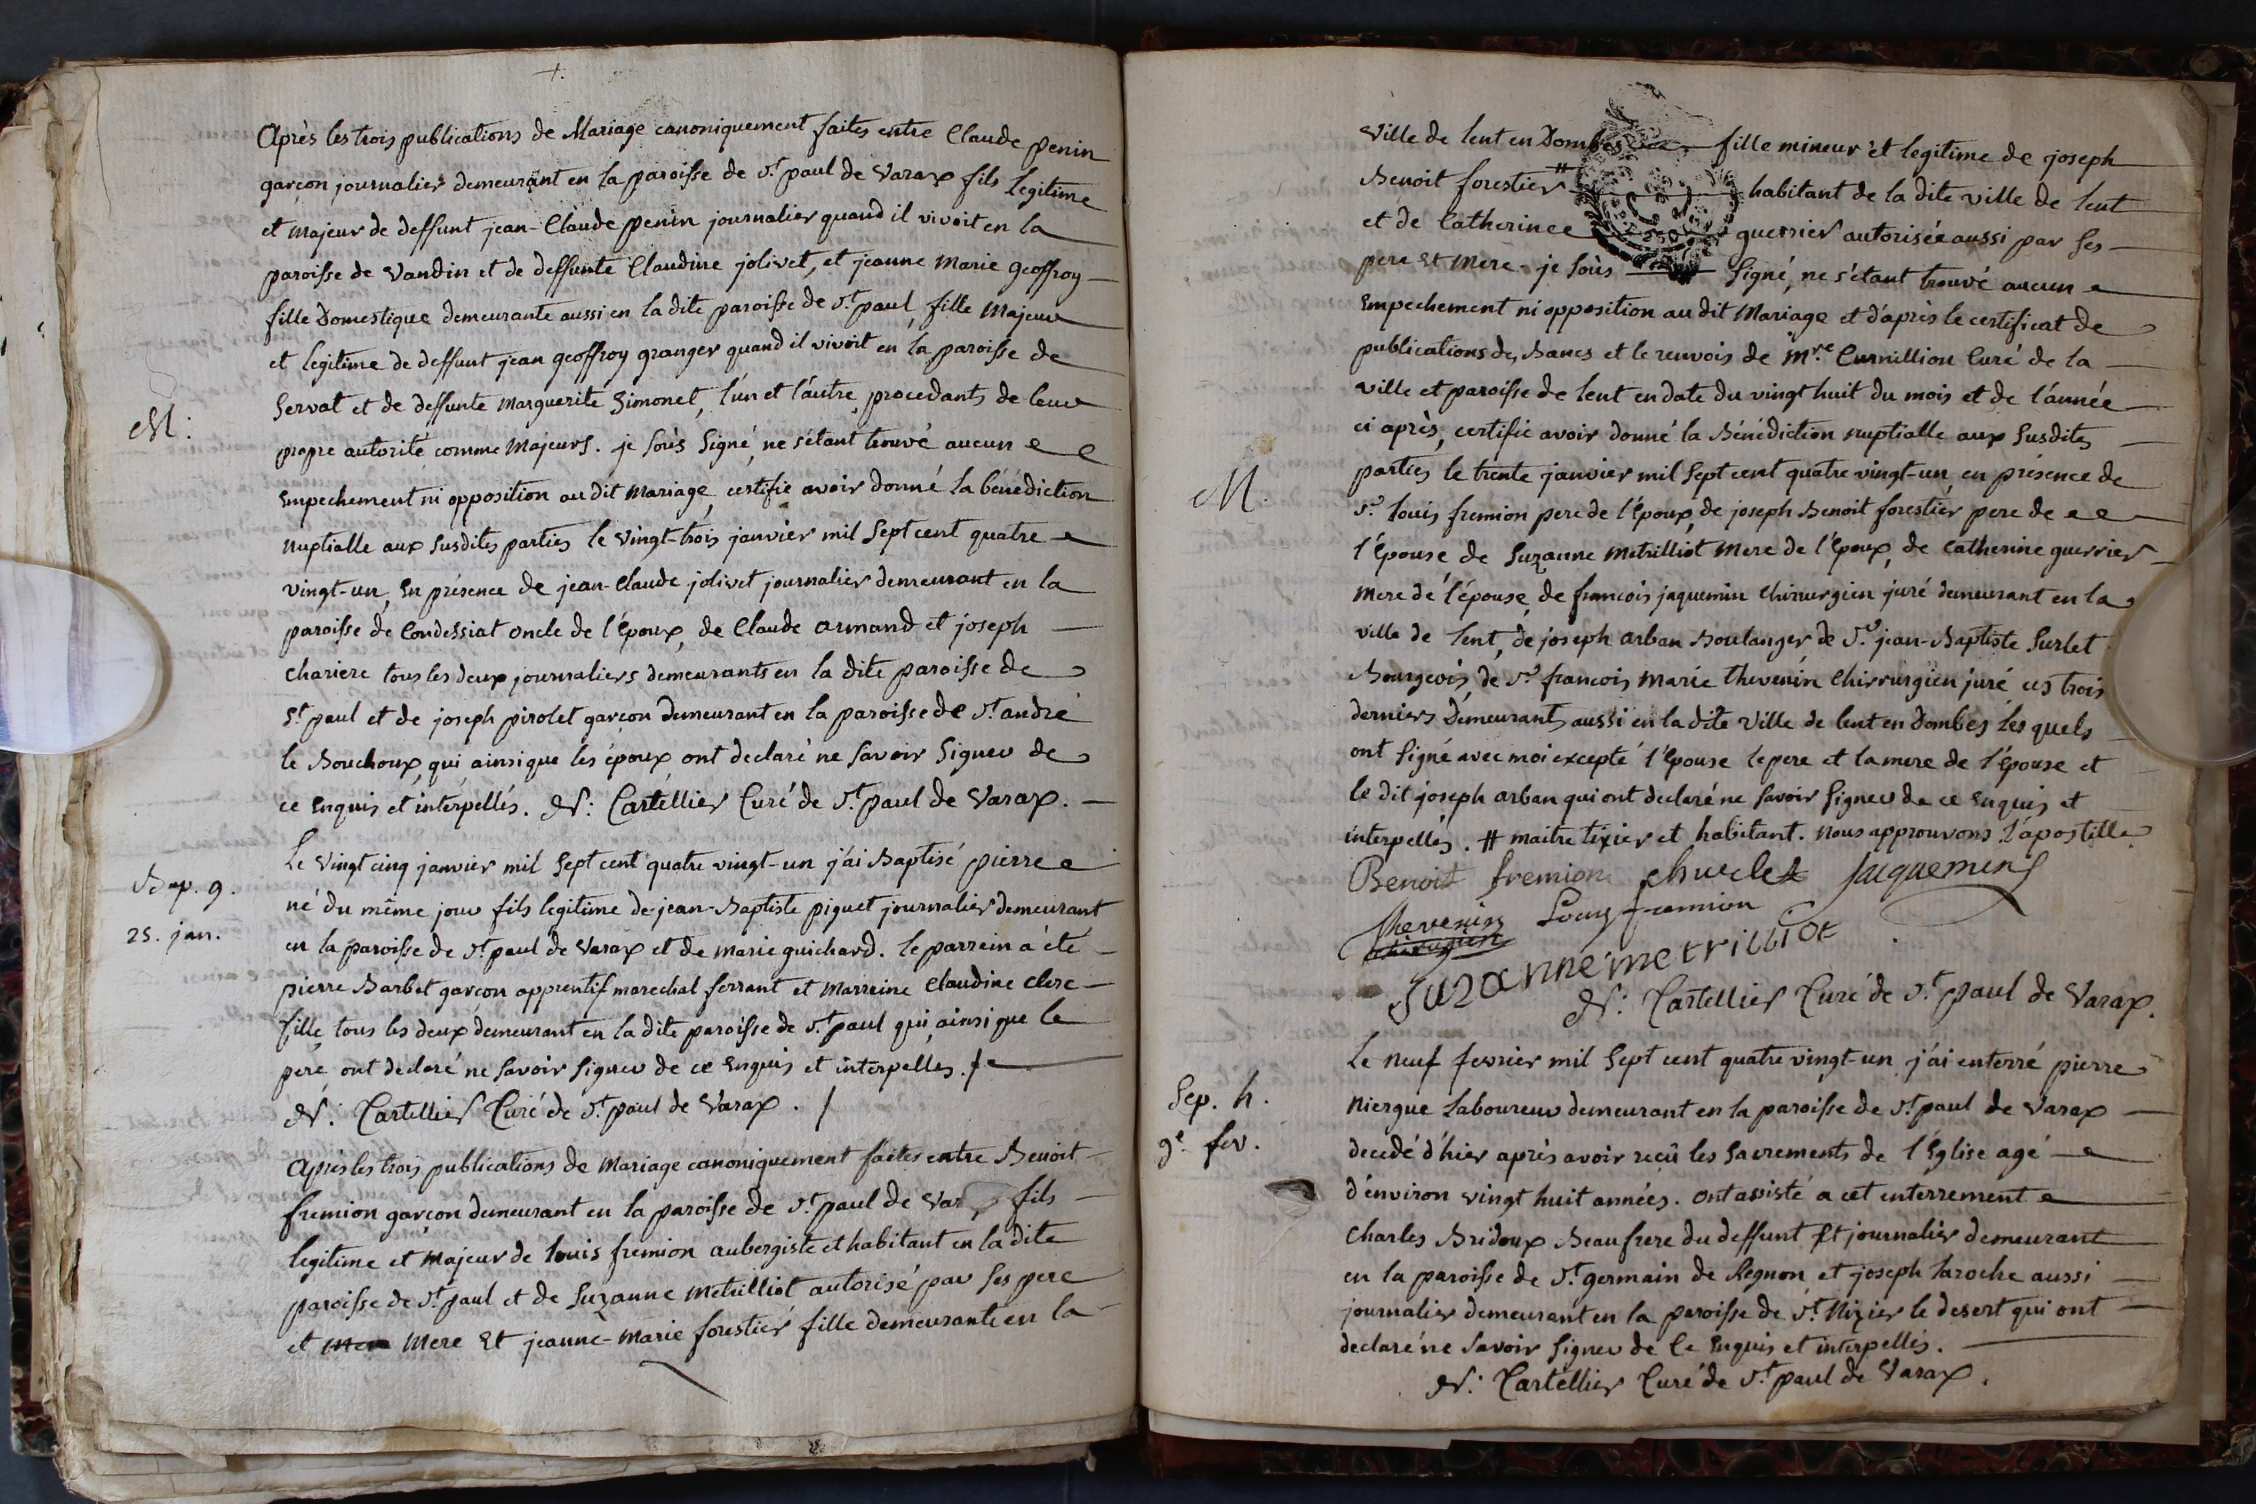 Après les trois publications de Mariage canoniquement faites entre Claude penin
garçon journalier demeurant en la paroisse de st paul de Varax fils legitime
et majeur de deffunt jean-Claude penin journalier quand il vivoit en la
paroisse de Vandin et de deffunte Claudine jolivet, et jeanne Marie geoffroy
fille Domestique demeurante aussi en la dite paroisse de st paul fille Majeur
et legitime de deffunt jean geoffroy granger quand il vivoit en la paroisse de
M:
Servat et de deffunte Marguerite Simonet, l'un et l'autre procedants de leur
propre autorité comme Majeurs. je soùs signé, ne s'étant trouvé aucun
Empechement ni opposition au dit Mariage, certifie avoir donné la bénédiction
nuptialle aux susdites parties le vingt-trois janvier mil sept cent quatre
vingt-un, En présence de jean-claude jolivet journalier demeurant en la
paroisse de Condessiat oncle de l'époux, de Claude armand et joseph
chariere tous les deux journaliers demeurants en la dite paroisse de
St paul et de joseph pirolet garçon demeurant en la paroisse de st andré
le Bouchoux, qui ainsi que les époux ont declaré ne savoir signer de
ce Enquis et interpellés. N: Cartellier Curé de st paul de Varax.
Bap. 9.
25. jan.
Le vingt cinq janvier mil sept cent quatre vingt-un j'ai Baptisé pierre
né du même jour fils legitime de jean-Baptiste piguet journalier demeurant
en la paroisse de st paul de Varax et de marie guichard. le parrein a été
pierre Barbet garçon apprentif marechal ferrant et Marreine Claudine clerc
fille tous les deux demeurant en la dite paroisse de st paul qui ainsi que le
pere ont declaré ne savoir signer de ce Enquis et interpellés.
N: Cartellier Curé de st paul de Varax.
Après les trois publications de Mariage canoniquement faites entre Benoit
fremion garçon demeurant en la paroisse de st paul de Var fils
legitime et majeur de louis fremion aubergiste et habitant en la dite
paroisse de st paul et de Suzanne metrilliot autorisé par ses pere
et mere Mere Et jeanne-Marie forestier fille demeurante en la
ville de lent en Dombes fille mineur et legitime de joseph
Benoit forestier # habitant de la dite ville de lent
et de Catherine guerrier autorisée aussi par ses
pere Et Mere. je soùs signé, ne s'étant trouvé aucun
Empechement ni opposition au dit Mariage et d'après le certificat de
publications des Bancs et le renvois de Mre Curnillion Curé de la
ville et paroisse de lent en date du vingt huit du mois et de l'année
M.
ci après, certifie avoir donné la Bénédiction nuptialle aux susdites
parties le trente janvier mil sept cent quatre vingt-un en présence de
sr louis fremion pere de l'époux, de joseph Benoit forestier pere de
l'épouse de Suzanne metrilliot Mere de l'époux, de Catherine guerrier
Mere de l'épouse, de francois jaquemin chirurgien juré demeurant en la
ville de lent, de joseph arban Boulanger de sr jean-Baptiste Surlet
Bourgeois, de sr francois Marie thevenin chirrurgien juré ces trois
derniers demeurants aussi en la dite ville de lent en Dombes Lesquels
ont signé avec moi excepté l'épouse le pere et la mere de l'épouse et
le dit joseph arban qui ont declaré ne savoir signer de ce Enquis et
interpellés. # maitre tixier et habitant. nous approuvons l'apostille
Benoit fremion Jaquemin
thevenin Louis fremion
chirurgien
Suzanne metrilliot
N: Cartellier Curé de st paul de Varax.
Sep. h.
9e fev.
Le neuf fevrier mil sept cent quatre vingt-un j'ai enterré pierre
niergue laboureur demeurant en la paroisse de st paul de Varax
decedé d'hier après avoir reçû les sacrements de l'Église agé
d'environ vingt huit années. ont assisté a cet enterrement
Charles Bridoux Beaufrere du deffunt Et journalier demeurant
en la paroisse de st germain de Regnon et joseph laroche aussi
journalier demeurant en la paroisse de st Nizier le desert qui ont
declaré ne savoir signer de ce Enquis et interpellés.
N: Cartellier Curé de st paul de Varax.